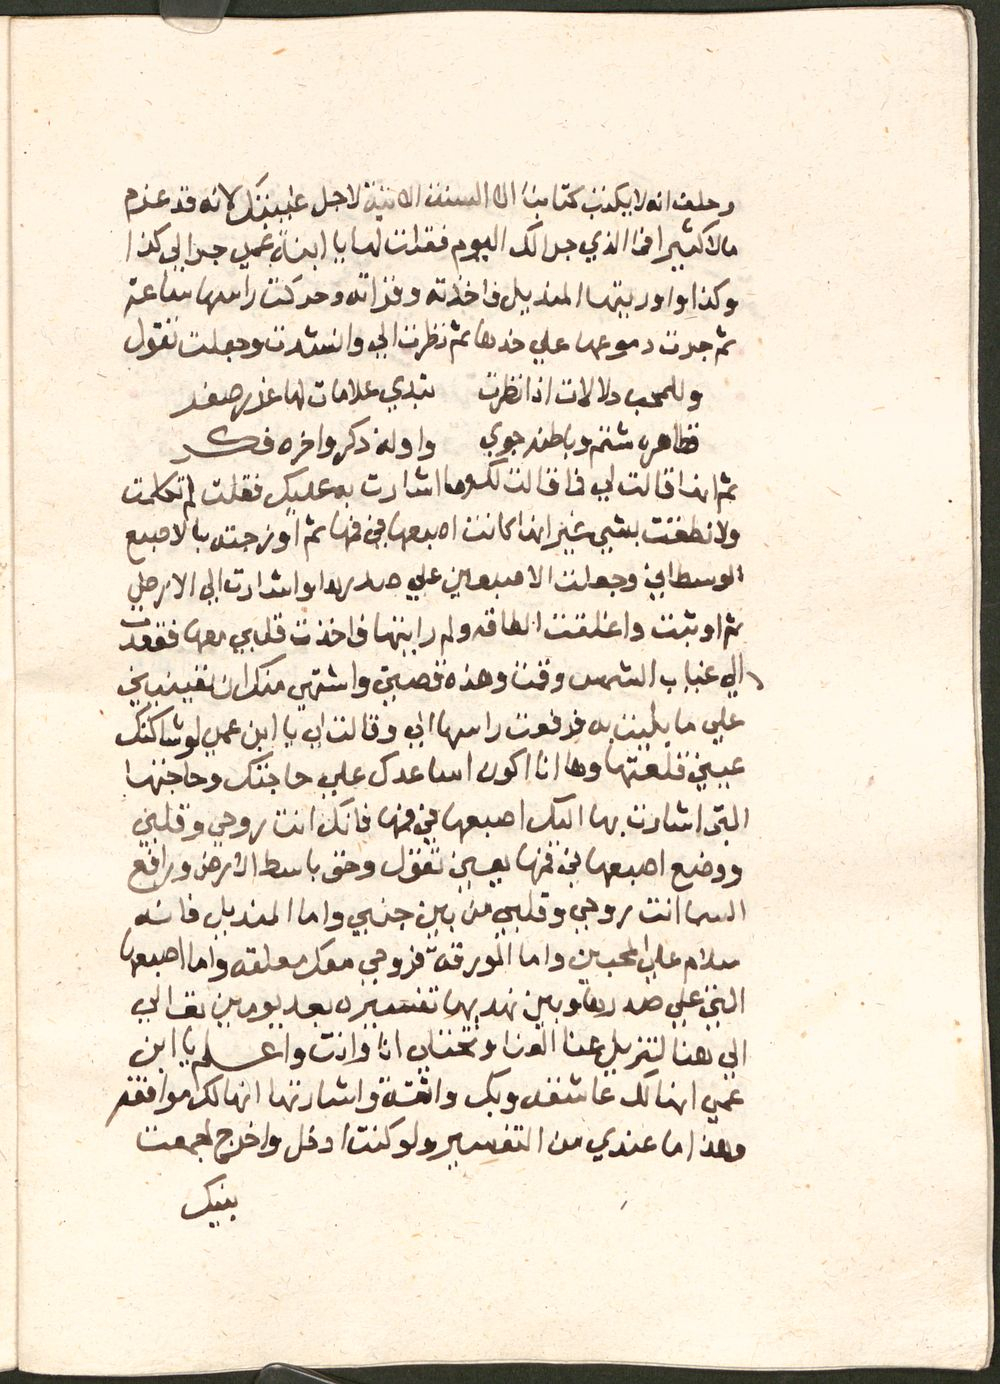 وحلف انه لا يكتب كتابنا الا السنة الاتية لاجل غيبتك لانه قد عزم
مالا كثيرا فما الذي جرا لك اليوم فقلت لها يا ابنة عمي جرا لي كذا
وكذا واوريتها المنديل فاخذته وقراته وحركت راسها ساعة
ثم جرت دموعها علي خدها ثم نظرت الي وانشدت وجعلت تقول
وللمحب دلالات اذا نظرت تبدي علامات لها غدر صفر
ظاهره شتم وباطنه جوي واوله ذكر واخره فكر
ثم انها قالت لي فما قالت لك وما اشارت به عليك فقلت لم تكلمت
ولا نطقت بشي غير انها كانت اصبعها في فمها ثم اوزجته بالاصبع
الوسطاني وجعلت الاصبعين علي صدرها واشارت الي الارض
ثم اوثبت واغلقت الطاقه ولم رايتها فاخذت قلبي معها فقعدت
الي غياب الشمس وقت وهذه قصتي واشتهي منك ان تعينيني
علي ما بليت به فرفعت راسها الي وقالت لي يا ابن عمي لو شاكتك
عيني قلعتها وها انا اكون اساعدك علي حاجتك وحاجتها
التي اشارت بها اليك اصبعها في فمها فانك انت روحي وقلبي
ووضع اصبعها في فمها يعني تقول وحق باسط الارض ورافع
السما انت روحي وقلبي من بين جنبي واما المنديل فانه
سلام علي المحبين واما الورقة فروحي معك معلقه واما اصبعها
التي علي صدرها وبين نهديها تفسيره بعد يومين تعالي
الي هنا لتزيل عنا العنا وتحتلي انا وانت واعلم يا ابن
عمي انها لك عاشقه وبك واثقة واشارتها انها لك موافقه
وهذا ما عندي من التفسير ولو كنت ادخل واخرج لجمعت
بنيك